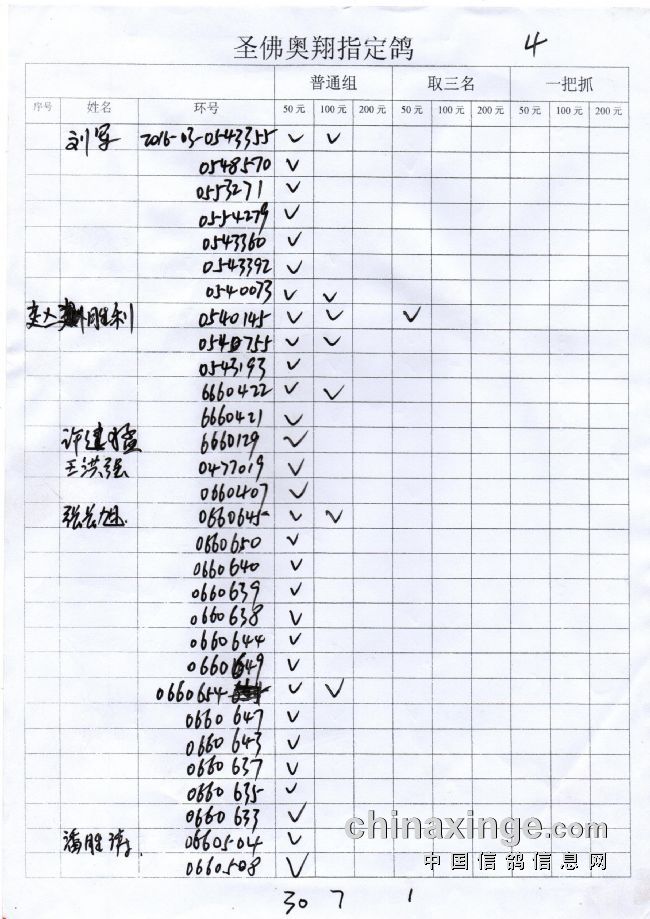 圣佛奥翔指定鸽 4
普通组 取三名 一把抓
序号 姓名 环号 50元 100元 200元 50元 100元 200元 50元 100元 200元
刘军 2016-03-0543355 ✓ ✓
0548570 ✓
0553271 ✓
0554279 ✓
0543360 ✓
0543392 ✓
0540073 ✓ ✓
胜利 0540145 ✓ ✓ ✓
0540755 ✓ ✓
0543193 ✓
6660422 ✓ ✓
6660421 ✓
许建 6660129 ✓
王洪强 0477019 ✓
0660407 ✓
张长旭 0660645 ✓ ✓
0660650 ✓
0660640 ✓
0660639 ✓
0660638 ✓
0660644 ✓
0660649 ✓
0660654 ✓ ✓
0660647 ✓
0660643 ✓
0660637 ✓
0660635 ✓
0660633 ✓
潘胜 0660504 ✓
0660508 ✓
30 7 1
chinaxinge.com
中国信鸽信息网